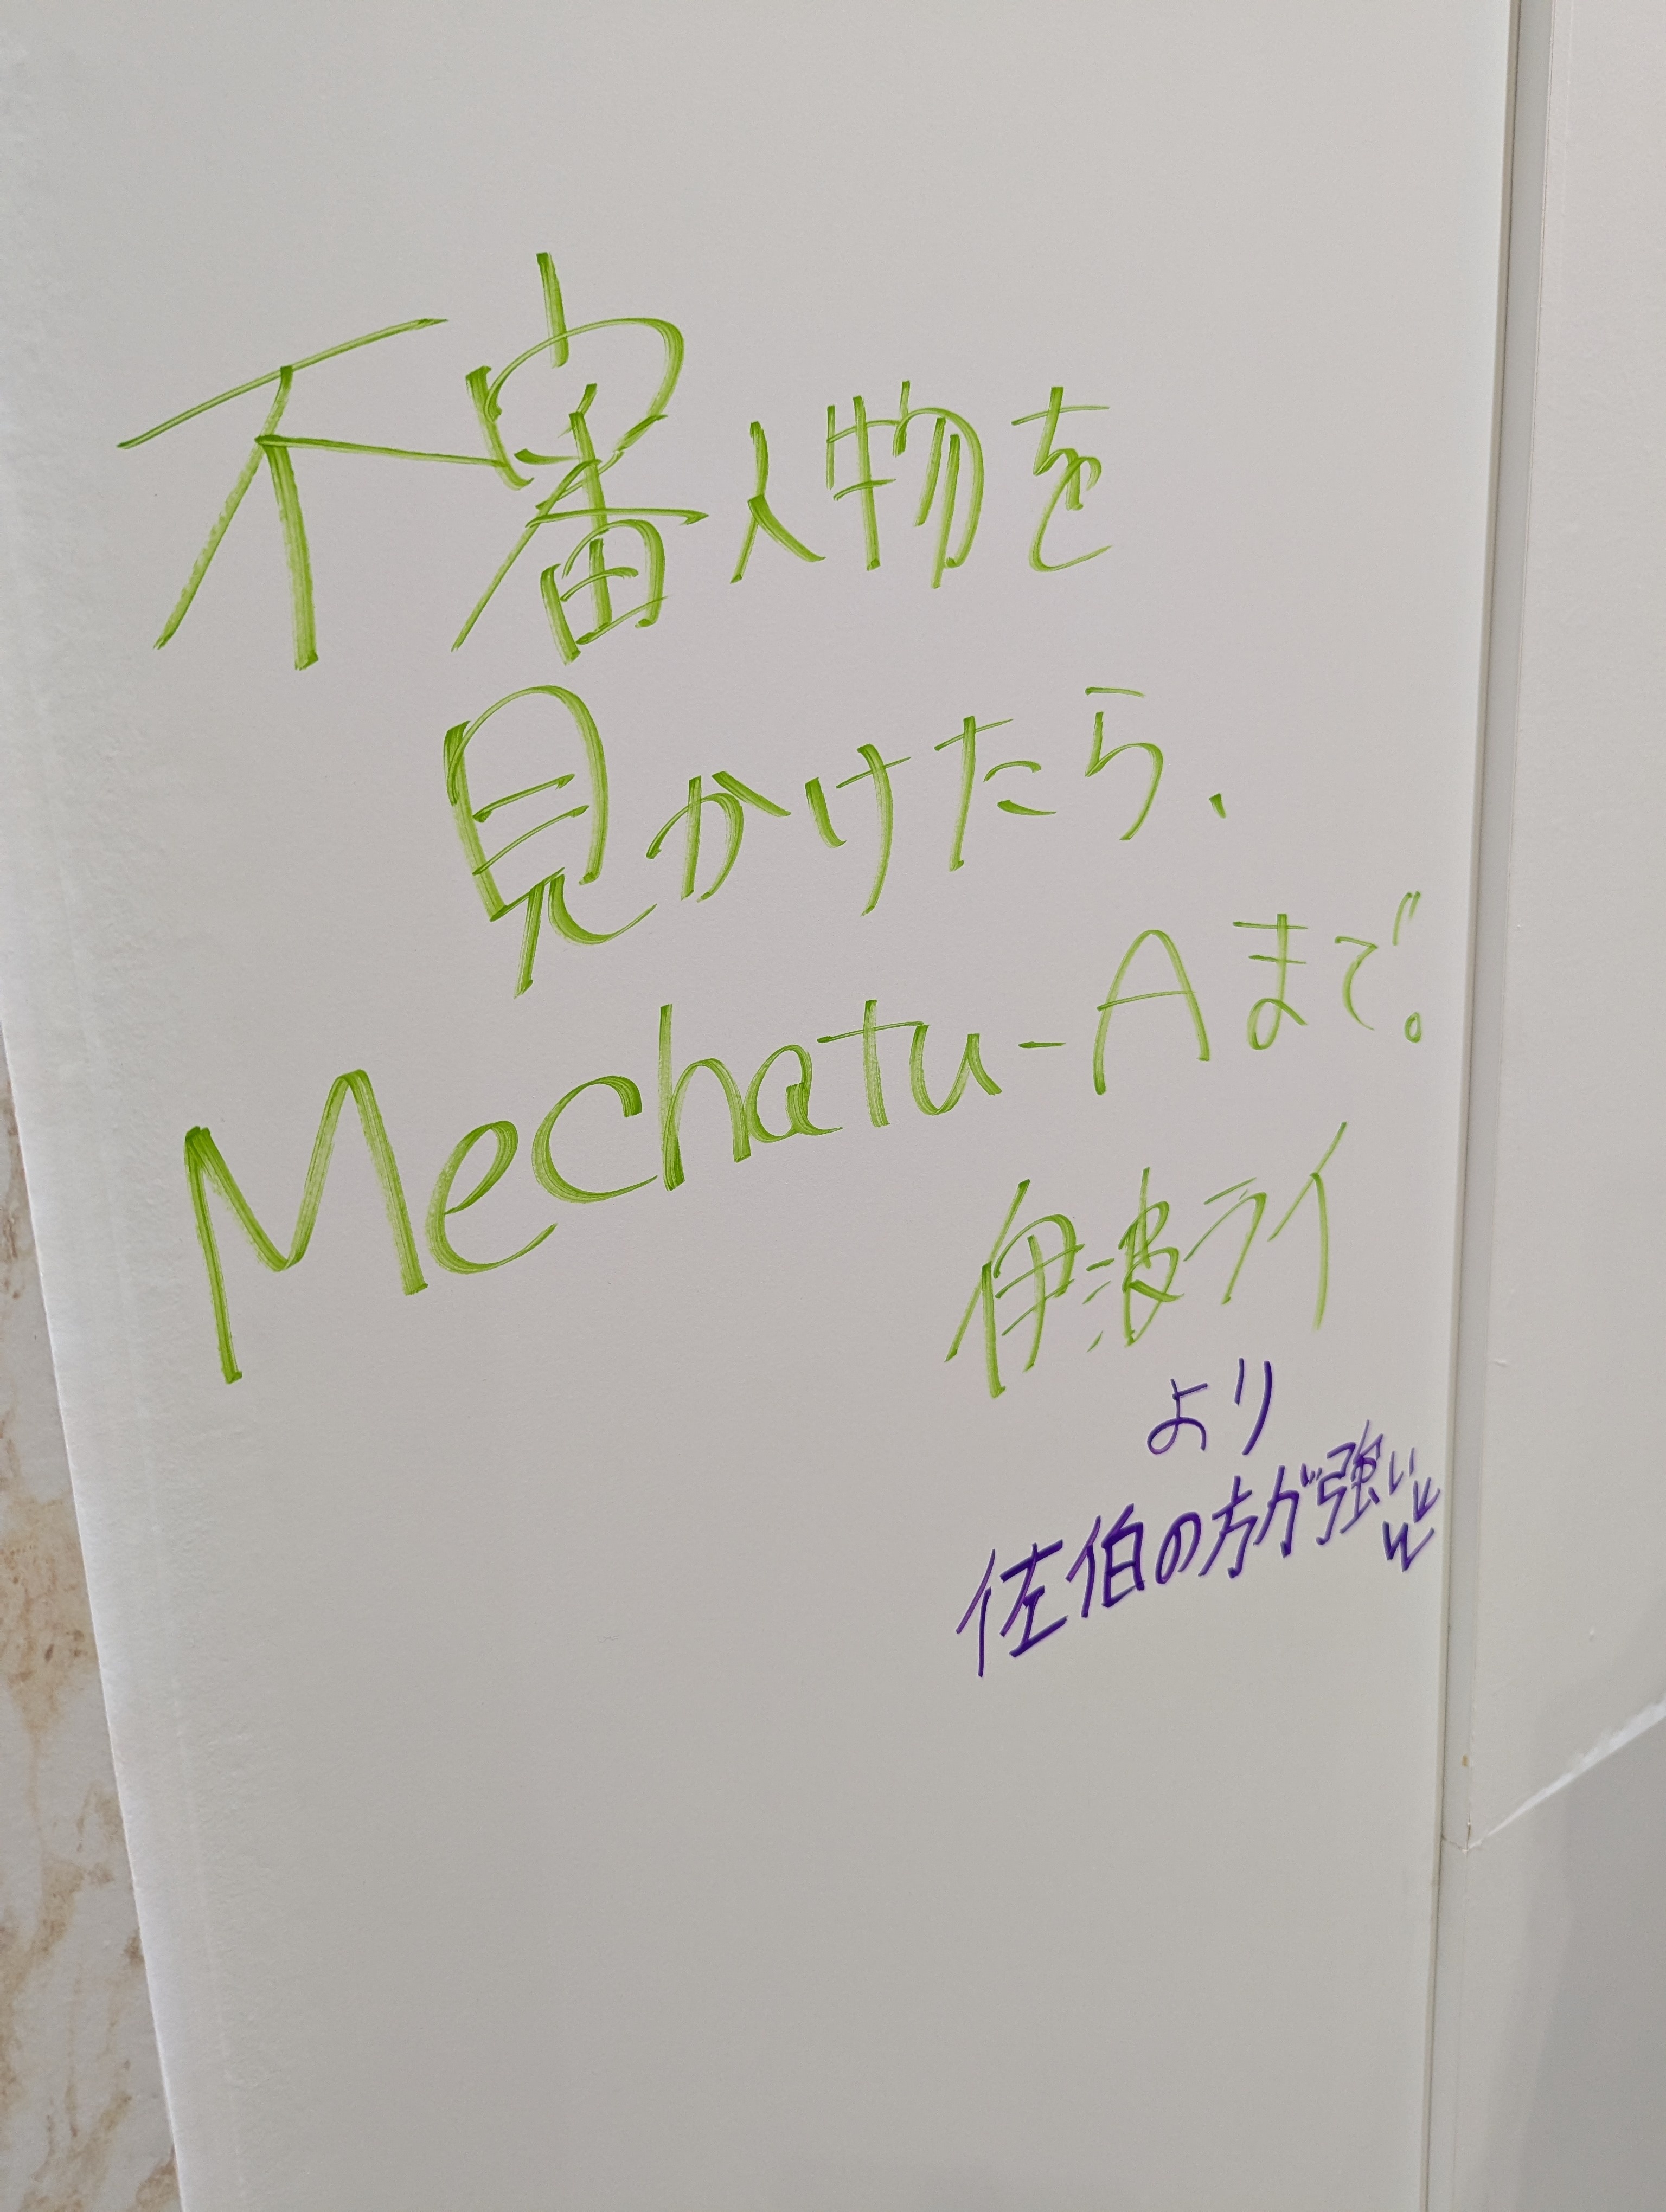 不審人物を
見かけたら、
Mechatu-Aまで。
伊波ライ
より
佐伯の方が強いww